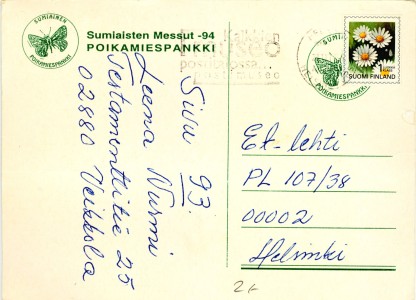 SUMIAINEN
POIKAMIESPANKKI
Sumiaisten Messut -94
POIKAMIESPANKKI
POIKAMIESPANKKI
SUOMI FINLAND
1
Sivu 93.
Leena Nurmi
Testamenttitie 25
02880 Veikkola
Et-lehti
PL 107/38
00002
Helsinki
2e